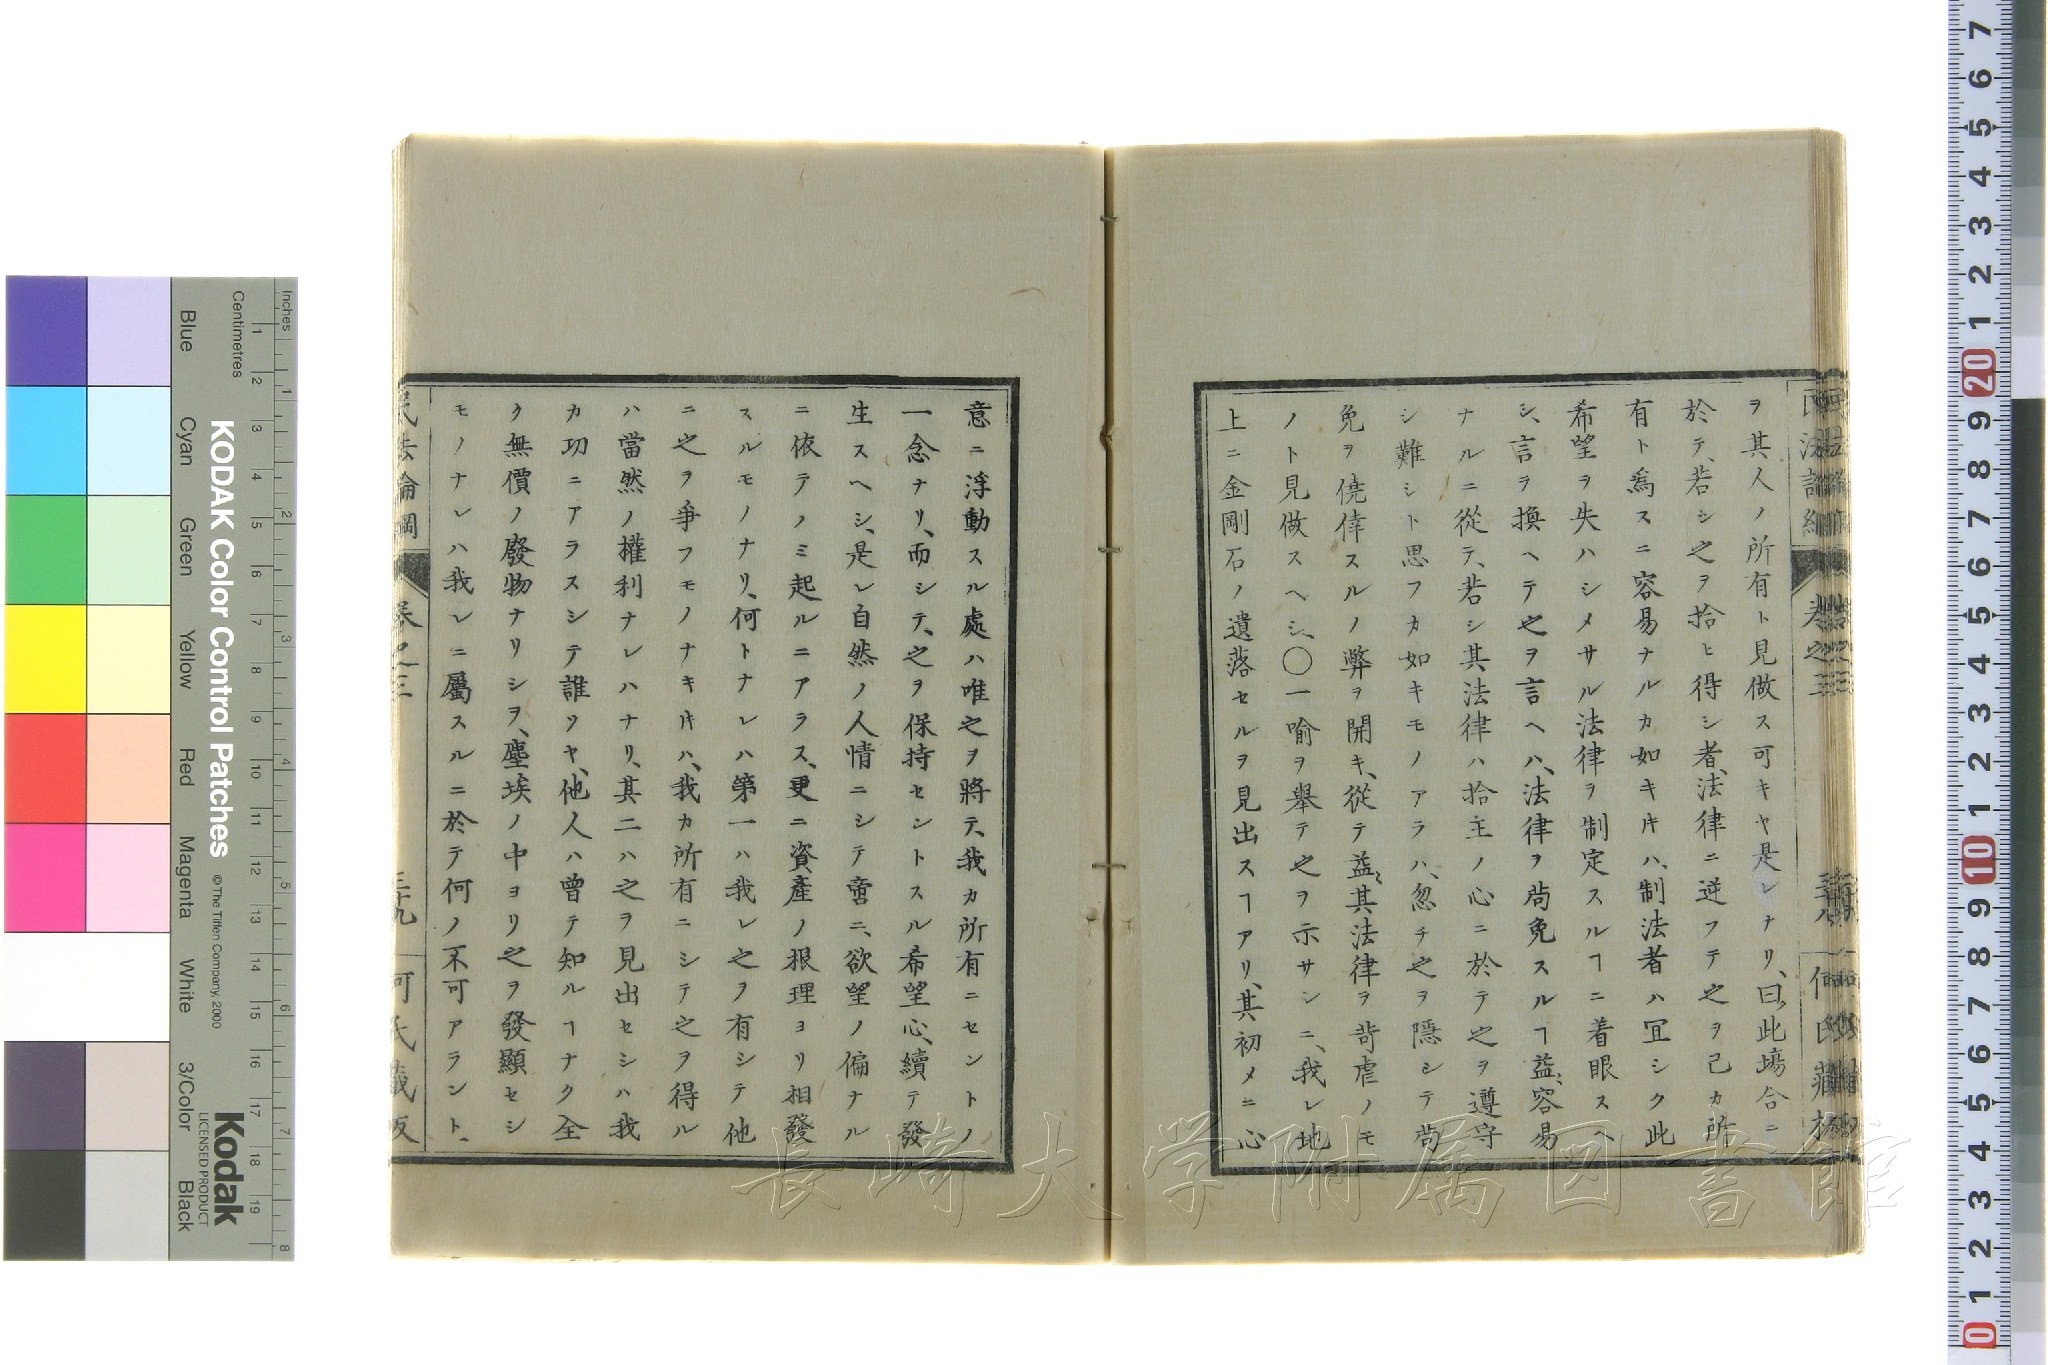 ヲ其人ノ所有ト見做ス可キヤ是レナリ、曰、此塲合ニ
於テ、若シ之ヲ拾ヒ得シ者、法律ニ逆フテ之ヲ己カ所
有ト爲スニ容易ナルカ如キ𪜈ハ、制法者ハ冝シク此
希望ヲ失ハシメサル法律ヲ制定スルヿニ着眼スヘ
シ、言ヲ換ヘテ之ヲ言ヘハ、法律ヲ尙免スルヿ益〻容易
ナルニ從テ、若シ其法律ハ拾主ノ心ニ於テ之ヲ遵守
シ難シト思フカ如キモノアラハ、忽チ之ヲ隱シテ尙
免ヲ僥倖スルノ弊ヲ開キ、從テ益〻其法律ヲ苛虐ノモ
ノト見做スヘシ、〇一喩ヲ舉テ之ヲ示サンニ、我レ地
上ニ金剛石ノ遺落セルヲ見出スヿアリ、其初メニ心
意ニ浮動スル處ハ唯之ヲ將テ、我カ所有ニセントノ
一念ナリ、而シテ、之ヲ保持セントスル希望心、續テ發
生スヘシ、是レ自然ノ人情ニシテ啻ニ、欲望ノ偏ナル
ニ依テノミ起ルニアラス、更ニ資產ノ根理ヨリ相發
スルモノナリ、何トナレハ第一ハ我レ之ヲ有シテ他
ニ之ヲ爭フモノナキ𪜈ハ、我カ所有ニシテ之ヲ得ル
ハ當然ノ權利ナレハナリ、其二ハ之ヲ見出セシハ我
カ功ニアラスシテ誰ソヤ、他人ハ曾テ知ルヿナク全
ク無價ノ廢物ナリシヲ、塵埃ノ中ヨリ之ヲ發顯セシ
モノナレハ我レニ屬スルニ於テ何ノ不可アラント、
民法論綱 卷之三 三十九 何氏藏板
長崎大学附属図書館
KODAK Color Control Patches
© The Tiffen Company, 2000
Kodak
LICENSED PRODUCT
Inches
Centimetres
Blue
Cyan
Green
Yellow
Red
Magenta
White
3/Color
Black